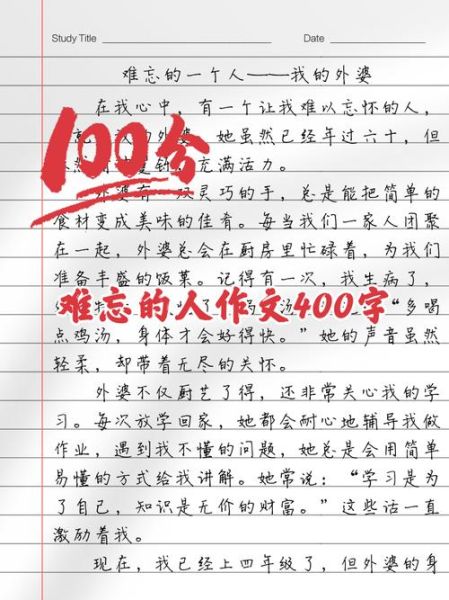 Study Title
Date
难忘的一个人——我的外婆
在我心中，有一个让我难以忘怀的人，
100分
的外婆。她虽然已经年过六十，但
充满活力。
外婆有一双灵巧的手，总是能把简单的
食材变成美味的佳肴。每当我们一家人团聚
在一起，外婆总会在厨房里忙碌着，为我们
准备丰盛的饭菜。记得有一次，我生病了，
难忘的人作文400字
“多喝
点鸡汤，身体才会好得快。”她的声音虽然
轻柔，却带着无尽的关怀。
外婆不仅厨艺了得，还非常关心我的学
习。每次放学回家，她都会耐心地辅导我做
作业，遇到我不懂的问题，她总是会用简单
易懂的方式给我讲解。她常说：“学习是为
了自己，知识是无价的财富。”这些话一直
激励着我。
现在，我已经上四年级了，但外婆的身